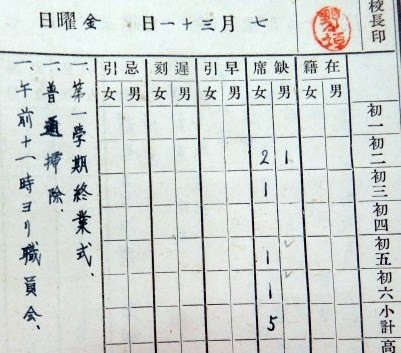 校長印
七月三十一日 金曜日
在籍 缺席 早引 遅刻 忌引
男 女 男 女 男 女 男 女 男 女
初一
初二 1 2
初三 1
初四
初五 1
初六 1
小計 5
高
一、第一學期終業式、
一、普通掃除、
一、午前十一時ヨリ職員会、